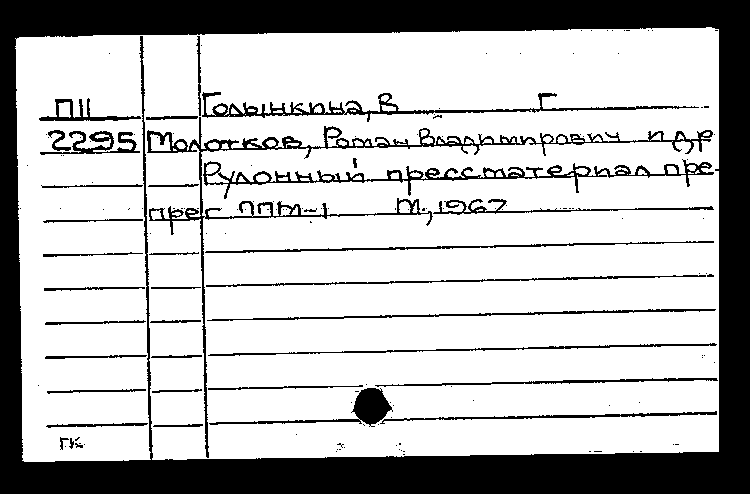 П11 Голынкина, В Г
2295 Молотков, Роман Владимирович и др
Рулонный прессматериал пре-
прег ППМ-1 М., 1967
ГК